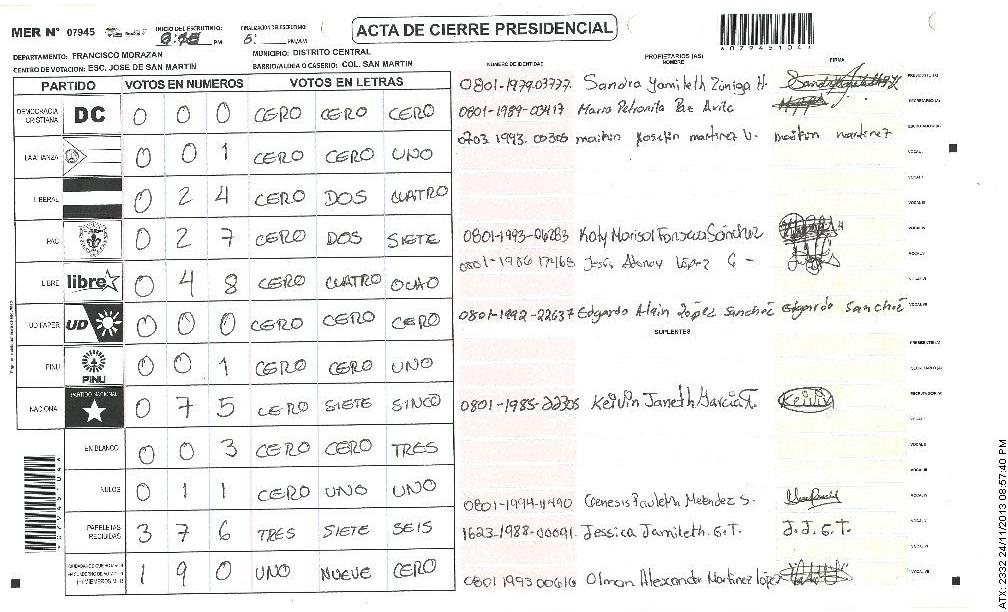 MER N° 07945 INICIO DEL ESCRUTINIO: PM FINALIZACION DEL ESCRUTINIO: 5: PM/AM
ACTA DE CIERRE PRESIDENCIAL
DEPARTAMENTO: FRANCISCO MORAZAN MUNICIPIO: DISTRITO CENTRAL
CENTRO DE VOTACION: ESC. JOSE DE SAN MARTIN BARRIO/ALDEA O CASERIO: COL. SAN MARTIN
NUMERO DE IDENTIDAD PROPIETARIOS (AS) NOMBRE FIRMA
PARTIDO VOTOS EN NUMEROS VOTOS EN LETRAS
DEMOCRACIA CRISTIANA DC 0 0 0 CERO CERO CERO
LA ALIANZA 0 0 1 CERO CERO UNO
LIBERAL 0 2 4 CERO DOS CUATRO
PAC 0 2 7 CERO DOS SIETE
LIBRE libre 0 4 8 CERO CUATRO OCHO
UD-FAPER UD 0 0 0 CERO CERO CERO
PINU PINU 0 0 1 CERO CERO UNO
NACIONAL PARTIDO NACIONAL 0 7 5 CERO SIETE SINCO
EN BLANCO 0 0 3 CERO CERO TRES
NULOS 0 1 1 CERO UNO UNO
PAPELETAS RECIBIDAS 3 7 6 TRES SIETE SEIS
1 9 0 UNO NUEVE CERO
0801-1979-03777 Sandra Yamileth Zuniga H. PRESIDENTE (A)
0801-1989-03417 Maria Petronila Paz Avila SECRETARIO (A)
0703-1993-00305 maikin Joselin martinez V. maikin martinez ESCRUTADOR (A)
VOCAL I
VOCAL II
VOCAL III
0801-1993-06283 Katy Marisol Fonseca Sánchez VOCAL IV
0801-1986 17468 Jesús López G VOCAL V
VOCAL VI
0801-1992-22637 Edgardo Alain López Sanchéz Edgardo Sanchéz VOCAL VII
SUPLENTES
PRESIDENTE (A)
SECRETARIO (A)
0801-1985-22305 Keivin Janeth Garcia T. Keivin ESCRUTADOR (A)
VOCAL I
VOCAL II
VOCAL III
0801-1994-11490 Genesis Pauleth Melendez S. VOCAL IV
1623-1988-00091 Jessica Jamileth. G.T. J.J.G.T. VOCAL V
VOCAL VI
0801 1993 00616 Olman Alexander Martinez lópez VOCAL VII
ATX: 2332 24/11/2013 08:57:40 PM